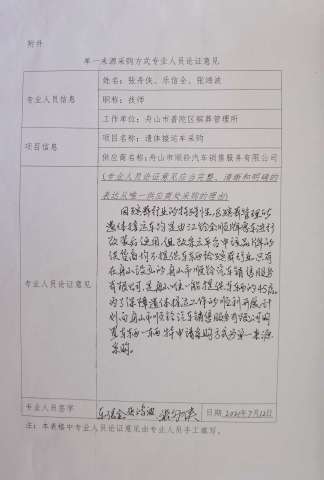 附件
单一来源采购方式专业人员论证意见
专业人员信息
姓名：张舟侠、乐信全、张鸿波
职称：技师
工作单位：舟山市普陀区殡葬管理所
项目信息
项目名称：遗体接运车采购
供应商名称：舟山市顺铃汽车销售服务有限公司
专业人员论证意见
（专业人员论证意见应当完整、清晰和明确的
表达从唯一供应商处采购的理由）
因殡葬行业的特殊性，区殡葬管理所
遗体接运车均是由江铃全顺牌
改装后使用，但
供货商均不提供车辆给殡葬行业，只有
在舟山设立的舟山市顺铃汽车销售服务
有限公司，是舟山唯一能提供车辆的
为了保障遗体接运工作的顺利开展，计
划向舟山市顺铃汽车销售服务有限公司购
置车辆一辆，特申请采购方式为单一来源
采购。
专业人员签字
乐信全 张鸿波 张舟侠
日期 2021年7月12日
注：本表格中专业人员论证意见由专业人员手工填写。